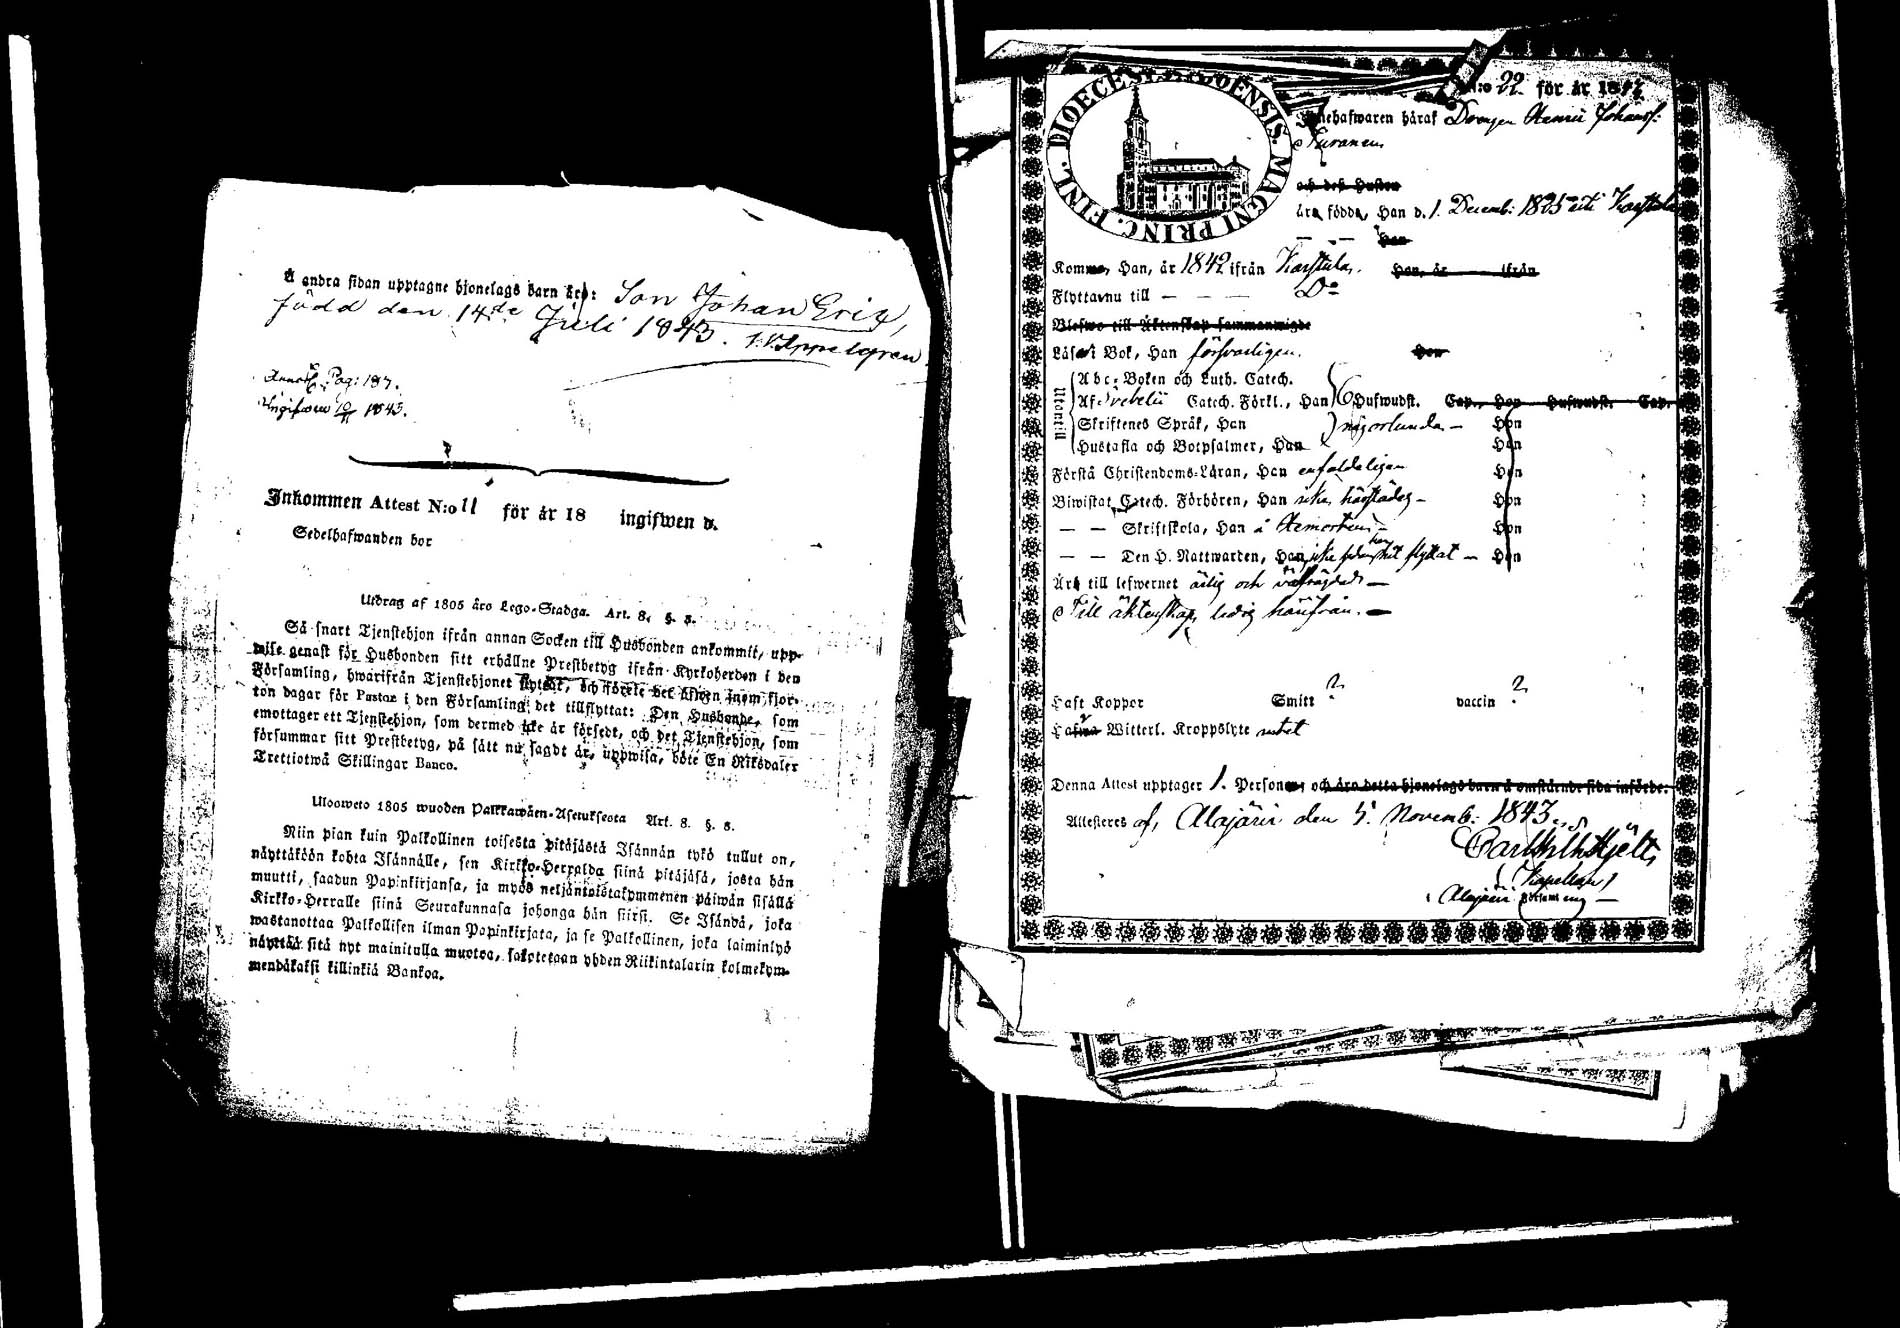 Å andra sidan upptagne hjonelags barn äro: Son Johan Eric,
född den 14de Juli 1843. Appelgren
Pag: 187.
Ingifwen 10/11 1843.
Inkommen Attest N:o 11 för år 18 ingifwen d.
Sedelhafwanden bor
Utdrag af 1805 års Lego-Stadga. Art. 8. §. 3.
Så snart Tjenstehjon ifrån annan Socken till Husbonden ankommit, upp-
wise genast för Husbonden sitt erhållne Prestbetyg ifrån Kyrkoherden i den
Församling, hwarifrån Tjenstehjonet flyttat, och förete det äfwen inom fjor-
ton dagar för Pastor i den Församling det tillflyttat: Den Husbonde, som
emottager ett Tjenstehjon, som dermed icke är försedt, och det Tjenstehjon, som
försummar sitt Prestbetyg, på sätt nu sagdt är, uppwisa, böte En Riksdaler
Trettiotwå Skillingar Banco.
Uloosweto 1805 wuoden Palkkawäen-Asetuksesta Art. 8. §. 3.
Niin pian kuin Palkollinen toisesta pitäjästä Isännän tykö tullut on,
näyttäköön kohta Isännälle, sen Kirkko-Herralda siinä pitäjäsä, josta hän
muutti, saadun Papinkirjansa, ja myös neljäntoistakymmenen päiwän sisällä
Kirkko-Herralle siinä Seurakunnasa johonga hän siirsi. Se Isändä, joka
wastanottaa Palkollisen ilman Papinkirjata, ja se Palkollinen, joka laiminlyö
näyttää sitä nyt mainitulla muotoa, sakotetaan yhden Riikintalarin kolmekym-
mendäkaksi killinkiä Bankoa.
FINL. DIOECESIS ABOENSIS. MAGNI PRINC.
N:o 22 för år 1843
Innehafwaren häraf Drengen Henric Johansf:
och deß Hustru
äro födde, Han d. 1 Decemb: 1825 uti Karstula
— — Hon
Komme, Han, år 1842 ifrån Karstula. Hon, år ifrån
Flyttarnu till — — — Do
Blefwo till Äktenskap sammanwigde
Läser i Bok, Han försvarligen. Hon
Utantill
Abc-Boken och Luth. Catech.
Af Svebelii Catech. Förkl., Han 6 Hufwudst. Cap., Hon Hufwudst. Cap.
Skriftenes Språk, Han någorlunda — Hon
Hustafla och Botpsalmer, Han Hon
Förstå Christendoms-Läran, Han enfaldeligen Hon
Biwistat Catech. Förhören, Han icke härstädes — Hon
— — Skriftskola, Han Hon
— — Den H. Nattwarden, Han icke sedan han hit flyttat — Hon
Äro till lefwernet ärlig och välfrägdad —
Till äktenskap ledig härifrån. —
Haft Koppor Smitt ? vaccin ?
Hafwa Witterl. Kroppslyte intet
Denna Attest upptager 1. Personer, och äro detta hjonelags barn å omstående sida införde:
Attesteres af, Alajärvi den 5. Novemb: 1843.
Carl Wilh Hjelt,
Kapellan i
Alajärvi Församling —